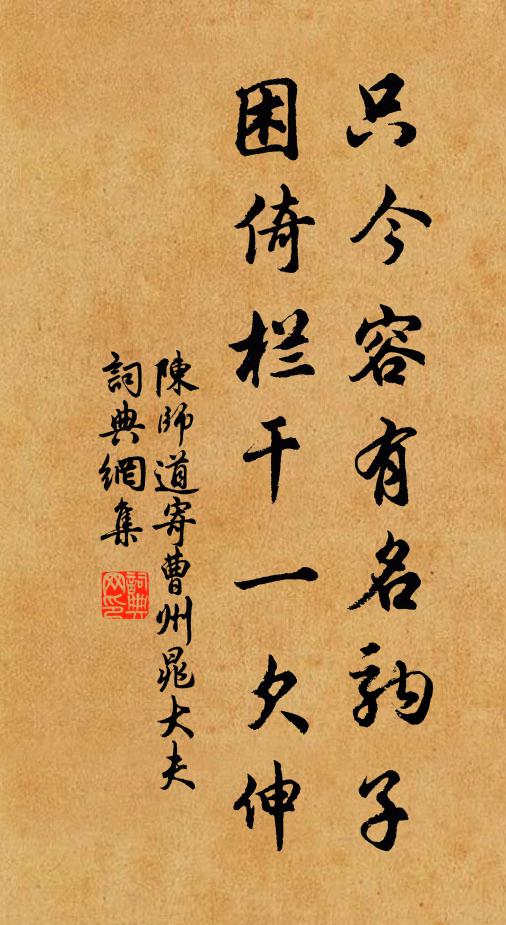 只今容有名驹子
困倚栏干一欠伸
陳師道寄曹州晁大夫
詞典網集
詞典
网印